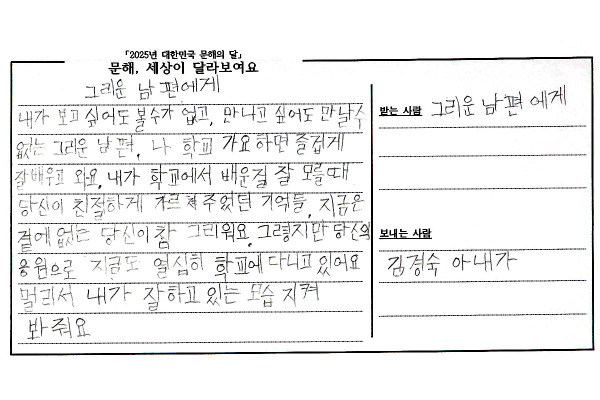 「2025년 대한민국 문해의 달」
문해, 세상이 달라보여요
그리운 남편에게
내가 보고 싶어도 볼수가 없고, 만나고 싶어도 만날수
없는 그리운 남편, 나 학교 가요하면 즐겁게
잘배우고 와요, 내가 학교에서 배운걸 잘 모를때
당신이 친절하게 가르쳐주었던 기억들, 지금은
곁에 없는 당신이 참 그리워요. 그렇지만 당신의
응원으로 지금도 열심히 학교에 다니고 있어요
멀리서 내가 잘하고 있는 모습 지켜
봐줘요
받는 사람 그리운 남편에게
보내는 사람
김경숙 아내가